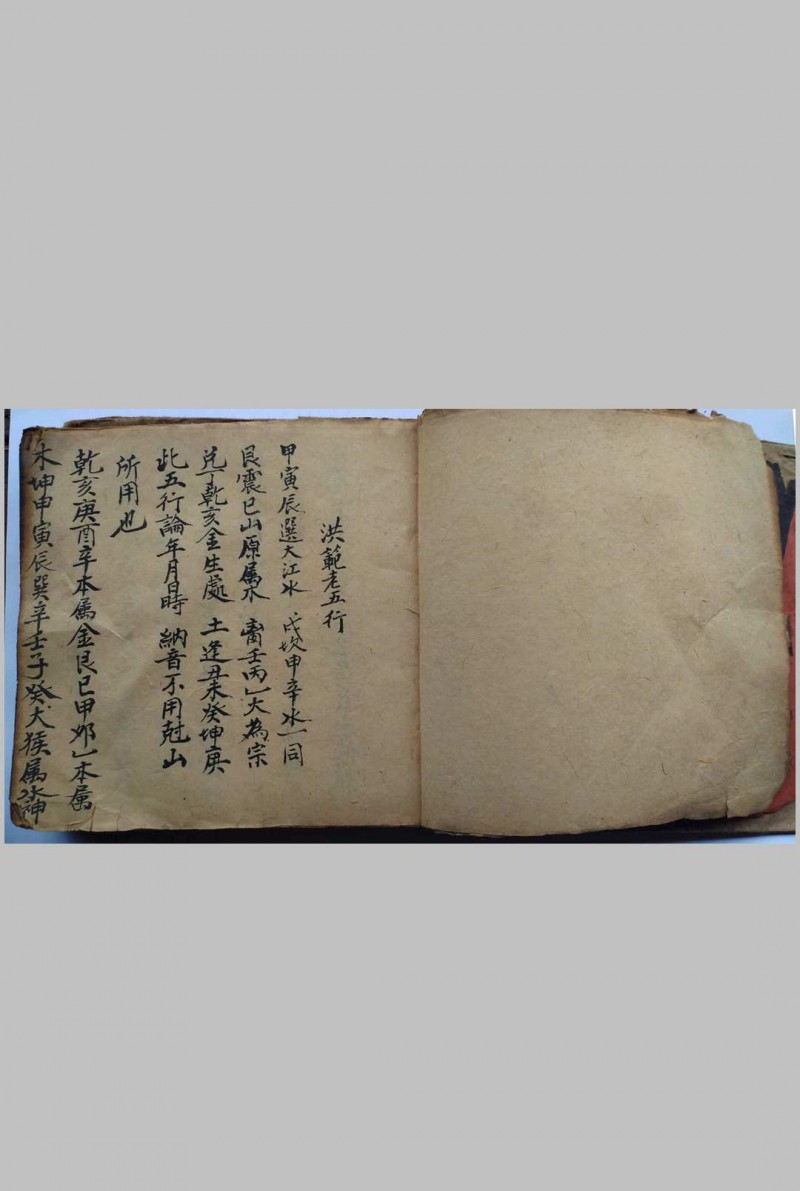 洪範老五行
甲寅辰選大江水 戌坎申辛水一同
艮震巳山原属木 离壬丙乙火為宗
兌丁乾亥金生處 土逢丑未癸坤庚
此五行論年月日時 納音不用尅山
所用也
乾亥庚酉辛本属金艮巳甲卯乙本属
木坤申寅辰巽辛壬子癸犬猴属水神